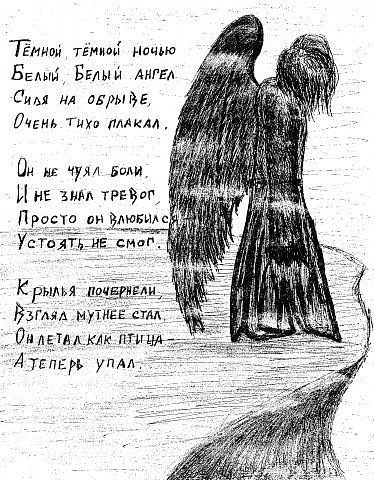 Тёмной, тёмной ночью
Белый, Белый ангел
Сидя на обрыве,
Очень тихо плакал.
Он не чуял боли,
И не знал тревог,
Просто он влюбился
Устоять не смог.
Крылья почернели,
Взгляд мутнее стал,
Он летал как птица –
А теперь упал.